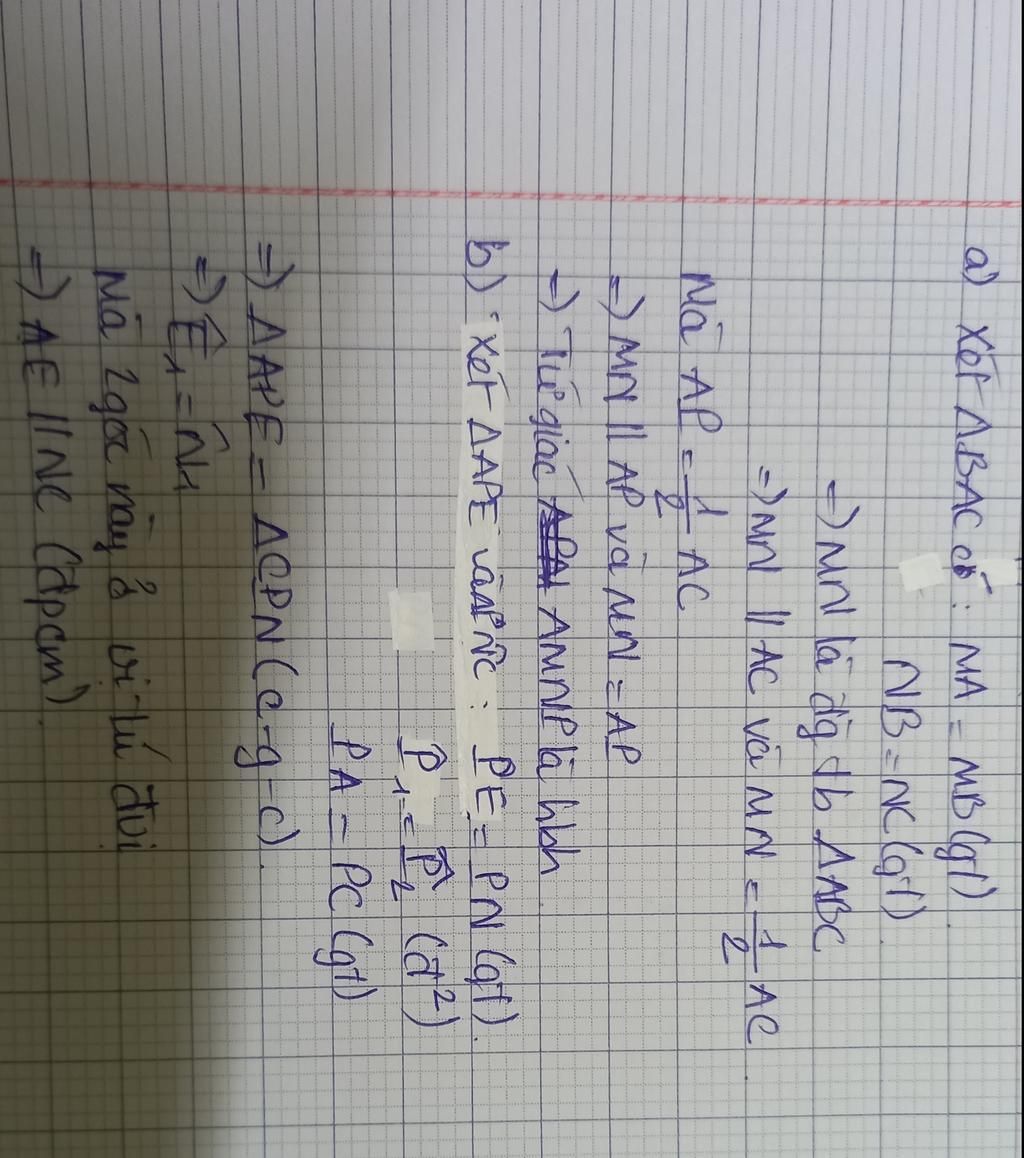 a) Xét ΔBAC có : MA = MB (gt).
NB = NC (gt)
=) MN là đg tb ΔABC
=) MN // AC và MN = 1/2 AC
Mà AP = 1/2 AC
=) MN // AP và MN = AP
=) Tứ giác AMNP là hbh
b) Xét ΔAPE và ΔPNC : PE = PN (gt).
P̂₁ = P̂₂ (đ²)
PA = PC (gt)
=) ΔAPE = ΔCPN (c-g-c).
=) Ê₁ = N̂₁
Mà 2 góc này ở vị trí đvị
=) AE // NC (đpcm)